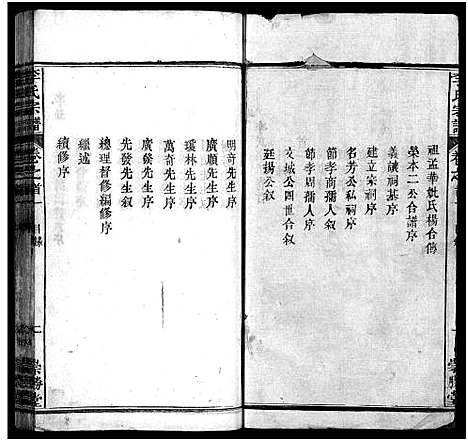 祖孟華妣氏楊合傳
榮本二公合譜序
義議祠基序
建立宗祠序
名芳公私祠序
節孝南孺人序
節孝周孺人序
文城公四世合叙
廷揚公叙
李氏宗譜
卷之首
目錄
崇勝堂
明奇先生序
廣順先生序
瑗林先生序
萬奇先生序
廣俊先生序
先發先生叙
總理督修編修序
繼述
續修序
李氏宗譜
卷之首
目錄
崇勝堂